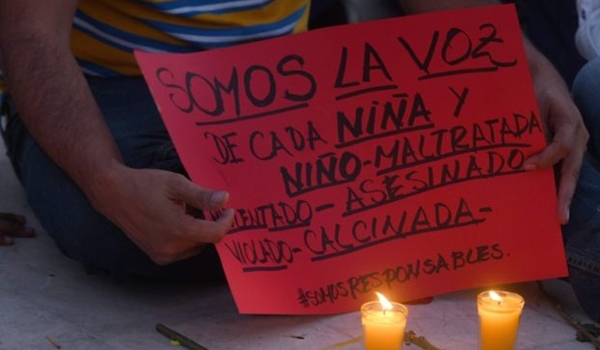 SOMOS LA VOZ
DE CADA NIÑA Y
NIÑO-MALTRATADA
ASESINADO
VIOLADO-CALCINADA-
#SOMOSRESPONSABLES.